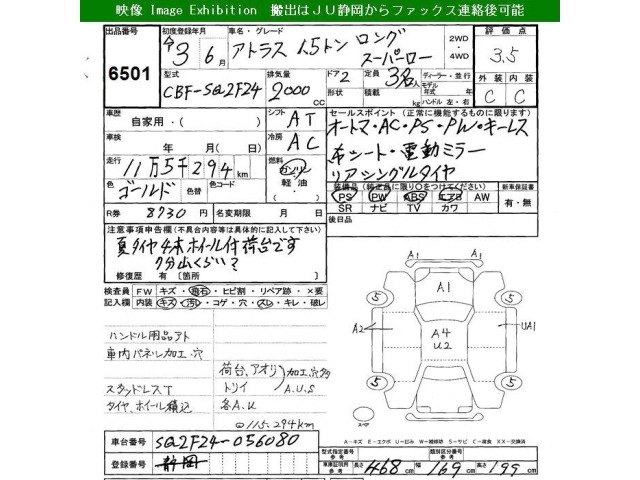 映像 Image Exhibition　搬出はＪＵ静岡からファックス連絡後可能
出品番号
6501
初度登録年月
令3年6月
車名・グレード
アトラス 1.5トン ロング
スーパーロー
2WD
・
4WD
評価点
3.5
型式
CBF-SQ2F24
排気量
2000 CC
ドア 2
形状
定員 3名人
積載 kg
ディーラー・並行
モデル
年式 年
ハンドル 左・右
外装 内装
C C
車歴
自家用・( )
シフト
AT
車検
年 月( 日)
冷房
AC
セールスポイント (正常に機能するものに限ります)
オートマ・AC・PS・PW・キーレス
布シート・電動ミラー
リアシングルタイヤ
走行
11万5千294km
燃料
ガソリン
軽油
色
ゴールド
色替
色コード
R券 8730 円
名変期限 月 日
装備品 (純正品に限り○をつけてください)
PS PW ABS エアB AW
SR ナビ TV カワ
新車保証書
有・無
後日品
注意事項申告欄 (不具合内容等は具体的に記入して下さい)
夏タイヤ4本ホイル付 荷台です
7分山くらい?
修復歴 有 〔箇所 〕
検査員 FW キズ・飛石・ヒビ割・リペア跡・×要
記入欄 内装 キズ・汚・コゲ・穴・スレ・キレ・破レ
ハンドル用品アト
車内パネル加工・穴
スタッドレスT
タイヤ、ホイール積込
荷台、アオリ
トリイ
加工、穴多
A.U.S
各A.U
◎115.294km
A1
A1
A1
5
5
A2
A4
U2
UA1
5
5
スペア
A－キズ E－エクボ U－凹み W－補修跡 S－サビ C－腐食 XX－交換済
車台番号
SQ2F24-056080
登録番号
静岡
型式指定番号
参考
類別区分番号
参考
車庫証明用
参考
長さ 468 cm
幅 169 cm
高さ 199 cm